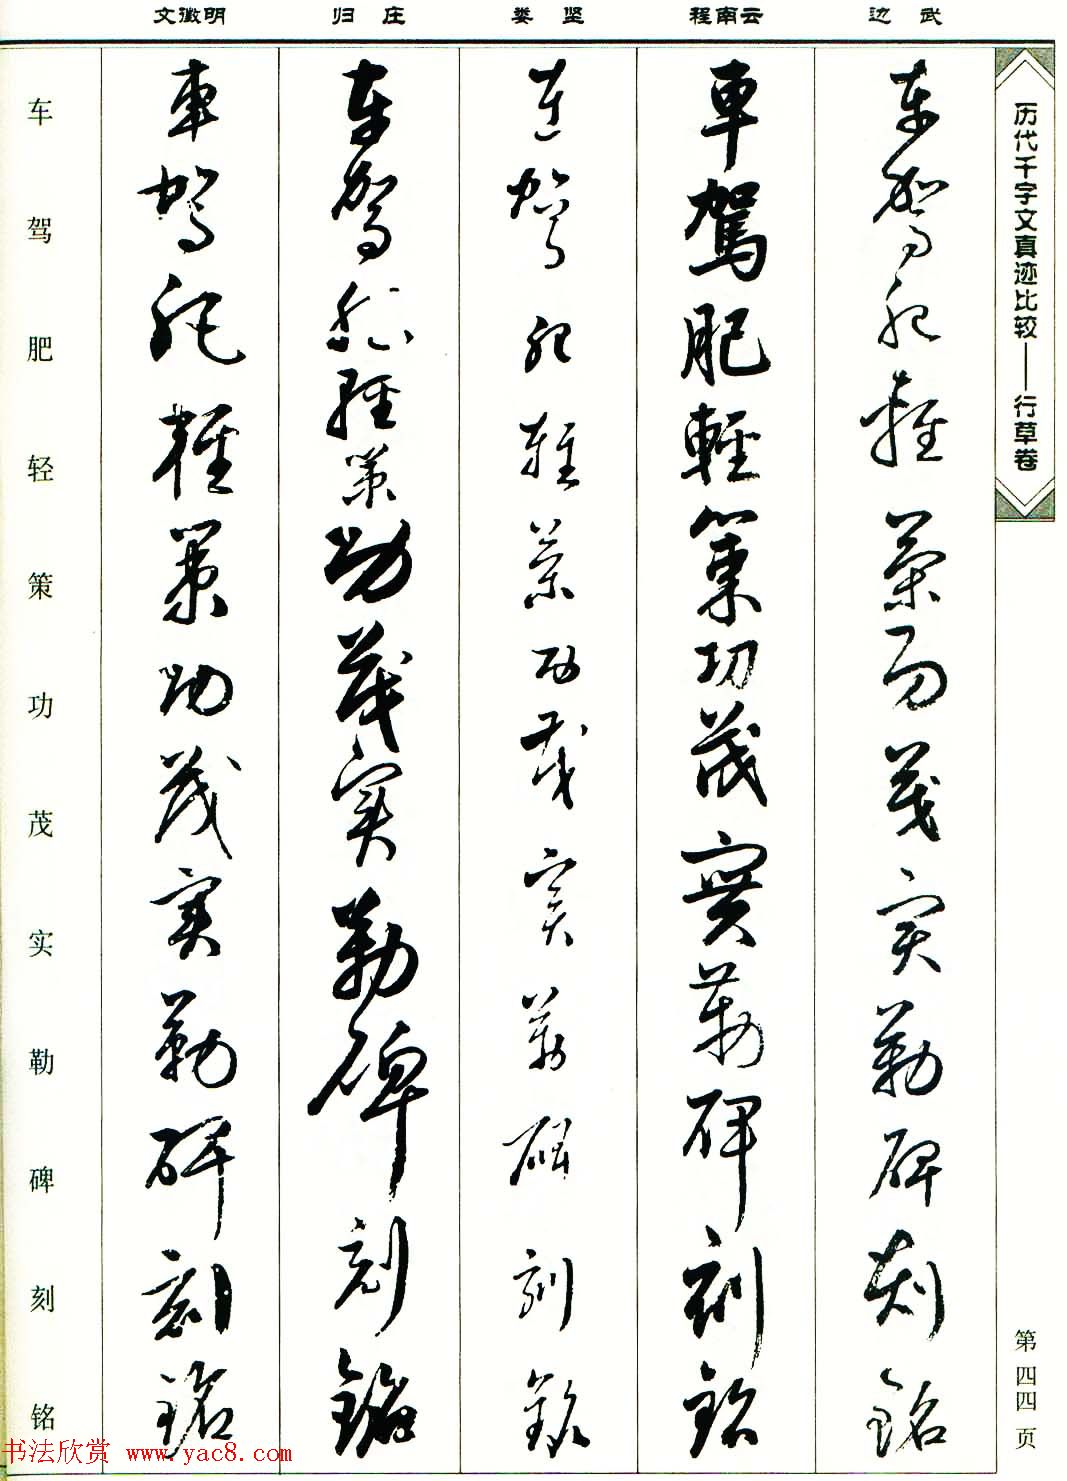 历代千字文真迹比较——行草卷
第四四页
边武
程南云
娄坚
归庄
文徵明
車駕肥輕策功茂實勒碑刻銘
車駕肥輕策功茂實勒碑刻銘
車駕肥輕策功茂實勒碑刻銘
車駕肥輕策功茂實勒碑刻銘
車駕肥輕策功茂實勒碑刻銘
车驾肥轻策功茂实勒碑刻铭
书法欣赏 www.yac8.com